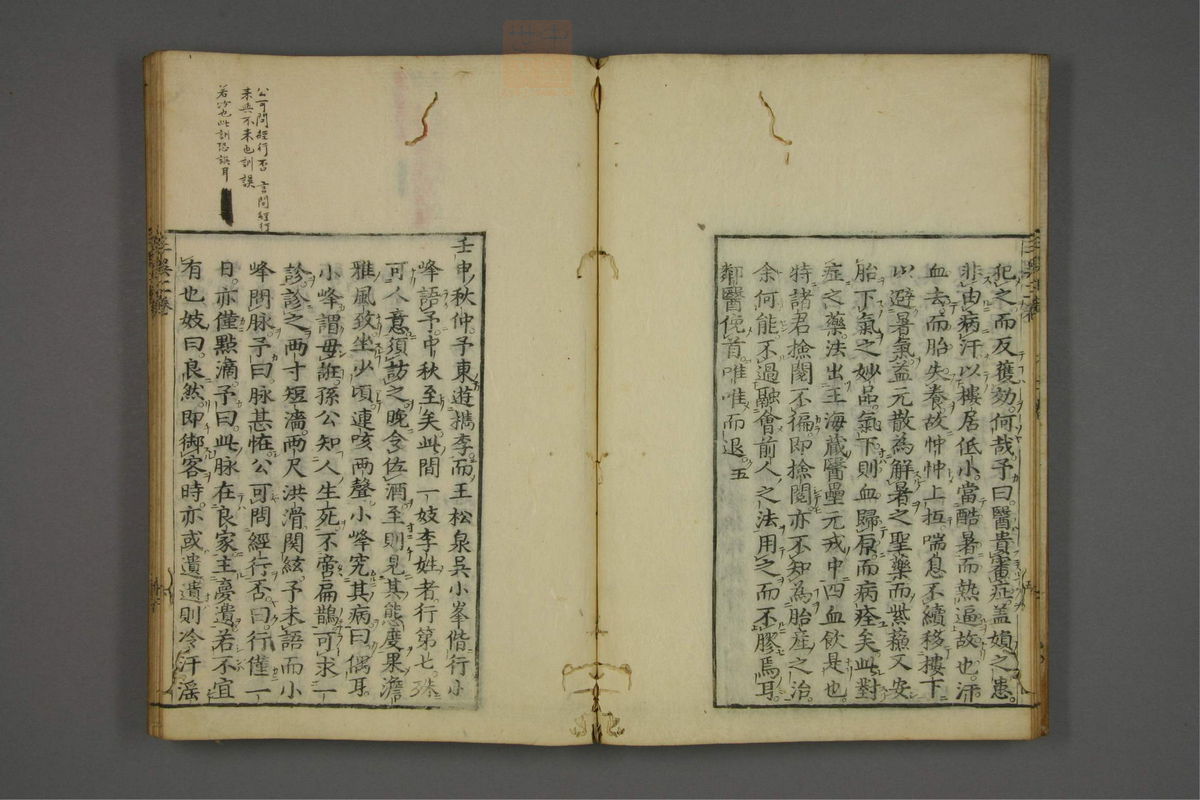 犯之而反獲効何哉予曰醫貴審症盖媍之患
非由病汗以樓居低小當酷暑而熱逼故也汗
血去而胎失養故忡忡上抵喘息不續移樓下
以避暑氣益元散為解暑之聖藥而紫蘓又安
胎下氣之妙品氣下則血歸原而病痊矣此對
症之藥法出王海藏醫壘元戎中四血飲是也
特諸君撿閱不徧即撿閱亦不知為胎産之治
余何能不過融會前人之法用之而不膠焉耳
鄰醫俛首唯唯而退五
公可問經行否 言問經行
来與不来也訓誤
若冷也此訓恐誤耳
壬申秋仲予東遊檇李而王松泉吳小峯偕行小
峰語予中秋至矣此間一妓李姓者行第七殊
可人意須訪之晚令佐酒至則見其態度果澹
雅風致坐少頃連咳兩聲小峰究其病曰偶耳
小峰謂毋誑孫公知人生死不啻扁鵲可求一
診診之兩寸短濇兩尺洪滑関絃予未語而小
峰問脉予曰脉甚恠公可問經行否曰行僅一
日亦僅點滴予曰此脉在良家主憂遺若不宜
有也妓曰良然即御客時亦或遺遺則冷汗滛